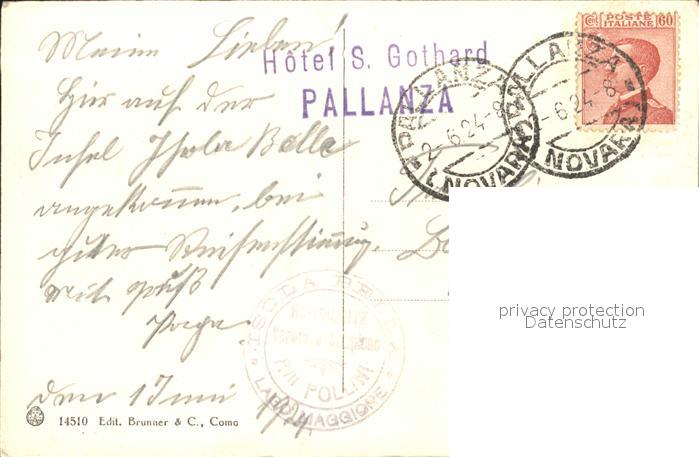 Meine Lieben!
Hier auf der
Insel Isola Bella
angekommen, bei
guter Reisestimmung.
Mit Gruß
Papa.
den 1 Juni 1924.
Hôtel S. Gothard
PALLANZA
PALLANZA
2-6.24-8
(NOVARA)
PALLANZA
-6.24-8
(NOVARA)
POSTE ITALIANE
Cmi 60
ISOLA BELLA
F.lli POLLINI
LAGO MAGGIORE
14510 Edit. Brunner & C., Como
privacy protection
Datenschutz